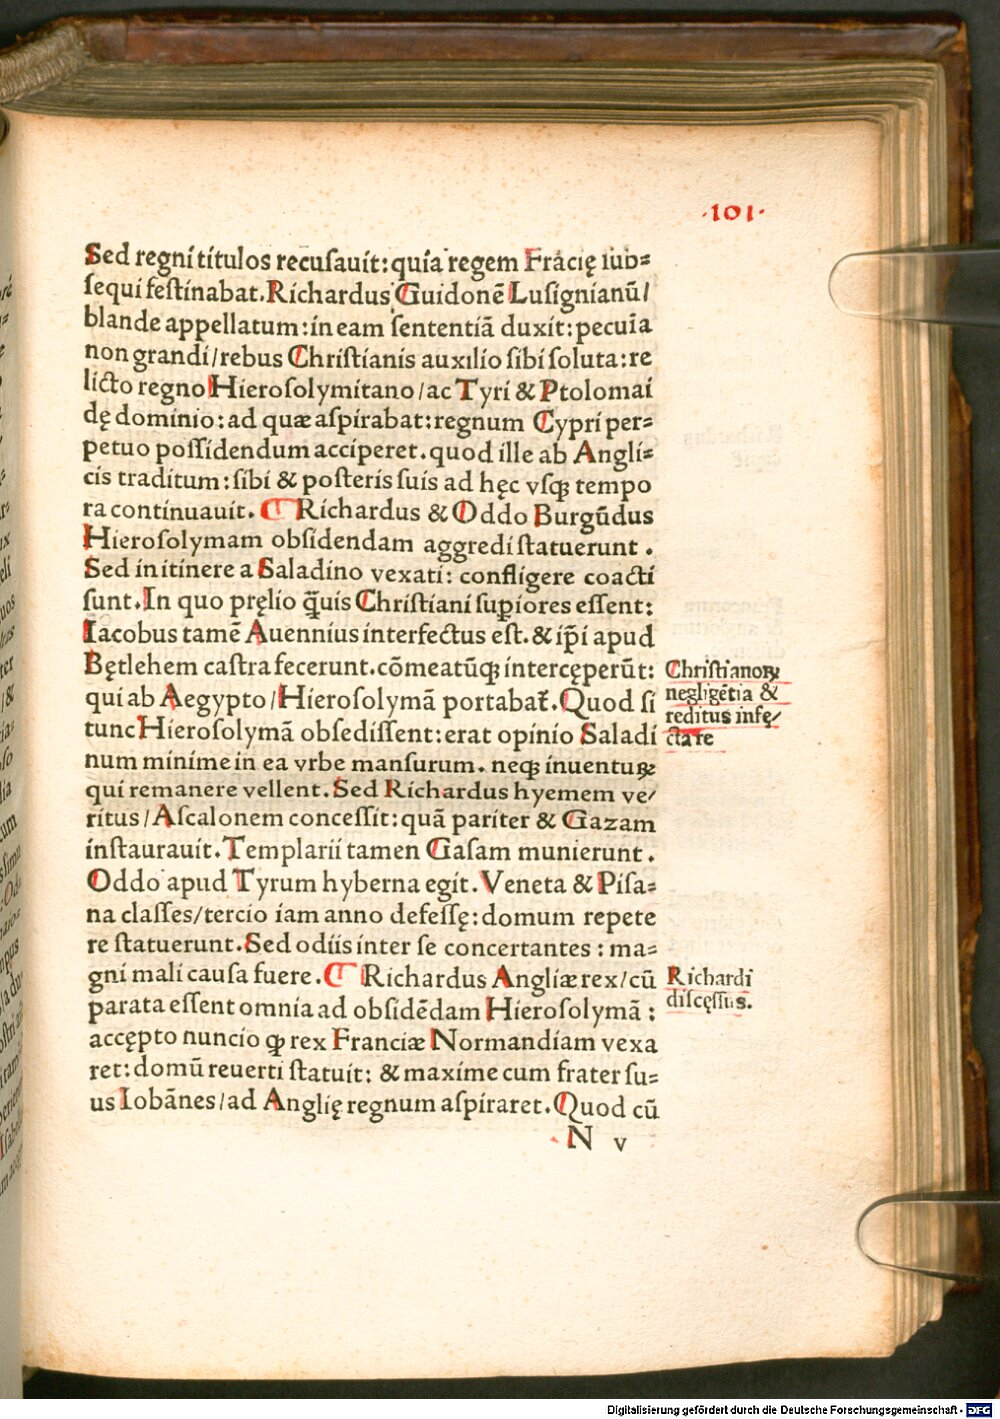 ·101·
Sed regni titulos recusauit: quia regem Frãcię iub⸗
sequi festinabat. Richardus Guidonẽ Lusignianũ/
blande appellatum: in eam sententiã duxit: pecuĩa
non grandi/rebus Christianis auxilio sibi soluta: re
licto regno Hierosolymitano/ac Tyri & Ptolomai
dę dominio: ad quæ aspirabat: regnum Cypri per⸗
petuo possidendum acciperet. quod ille ab Angli⸗
cis traditum: sibi & posteris suis ad hęc vsqꝫ tempo
ra continuauit. ¶ Richardus & Oddo Burgũdus
Hierosolymam obsidendam aggredi statuerunt.
Sed in itinere a Saladino vexati: confligere coacti
sunt. In quo pręlio q̃uis Christiani supiores essent:
Iacobus tamẽ Auennius interfectus est. & ip̃i apud
Bętlehem castra fecerunt. cõmeatũqꝫ intercęperũt:
qui ab Aegypto/Hierosolymã portabat̃. Quod si
tunc Hierosolymã obsedissent: erat opinio Saladi
num minime in ea vrbe mansurum. neqꝫ inuentuꝝ
qui remanere vellent. Sed Richardus hyemem ve/
ritus/Ascalonem concessit: quã pariter & Gazam
instaurauit. Templarii tamen Gasam munierunt.
Oddo apud Tyrum hyberna egit. Veneta & Pisa⸗
na classes/tercio iam anno defessę: domum repete
re statuerunt. Sed odiis inter se concertantes: ma⸗
gni mali causa fuere. ¶ Richardus Angliæ rex/cũ
parata essent omnia ad obsidẽdam Hierosolymã:
accępto nuncio ꝙ rex Franciæ Normandiam vexa
ret: domũ reuerti statuit: & maxime cum frater su⸗
us Iohãnes/ad Anglię regnum aspiraret. Quod cũ
N v
Christianoꝝ
negligẽtia &
reditus infę/
ctare
Richardi
discęssus.
Digitalisierung gefördert durch die Deutsche Forschungsgemeinschaft - DFG